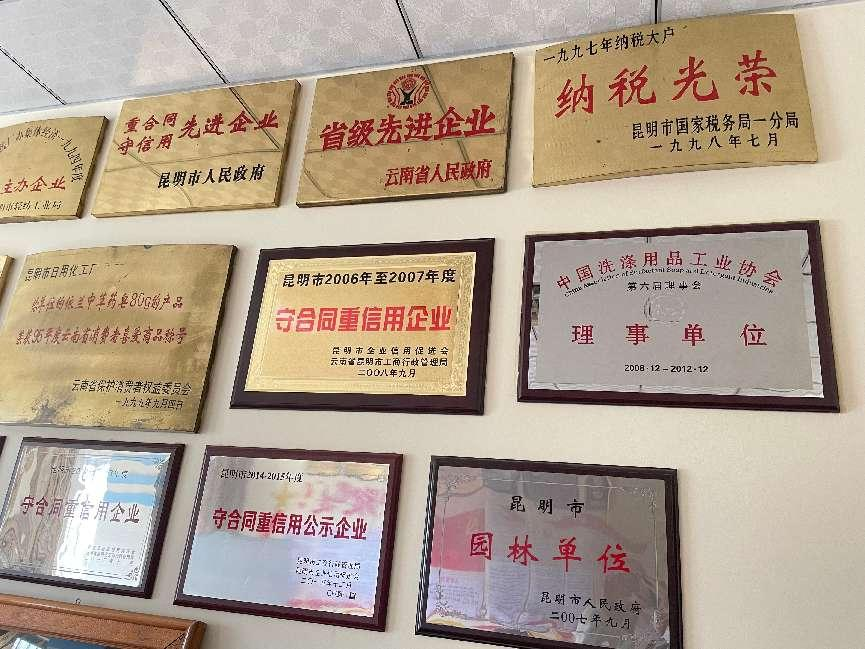 一九九四年度
主办企业
重合同
守信用 先进企业
昆明市人民政府
省级先进企业
云南省人民政府
一九九七年纳税大户
纳税光荣
昆明市国家税务局一分局
一九九八年七月
昆明市日用化工厂
中草药皂80g的产品
95年度云南省消费者喜爱商品称号
云南省保护消费者权益委员会
昆明市2006年至2007年度
守合同重信用企业
昆明市企业信用促进会
云南省昆明市工商行政管理局
二〇〇八年九月
中国洗涤用品工业协会
China Association of Surfactant Soap and Detergent Industries
第六届理事会
理事单位
2008·12-2012·12
守合同重信用企业
昆明市2014-2015年度
守合同重信用公示企业
昆明市
园林单位
昆明市人民政府
二〇〇七年九月